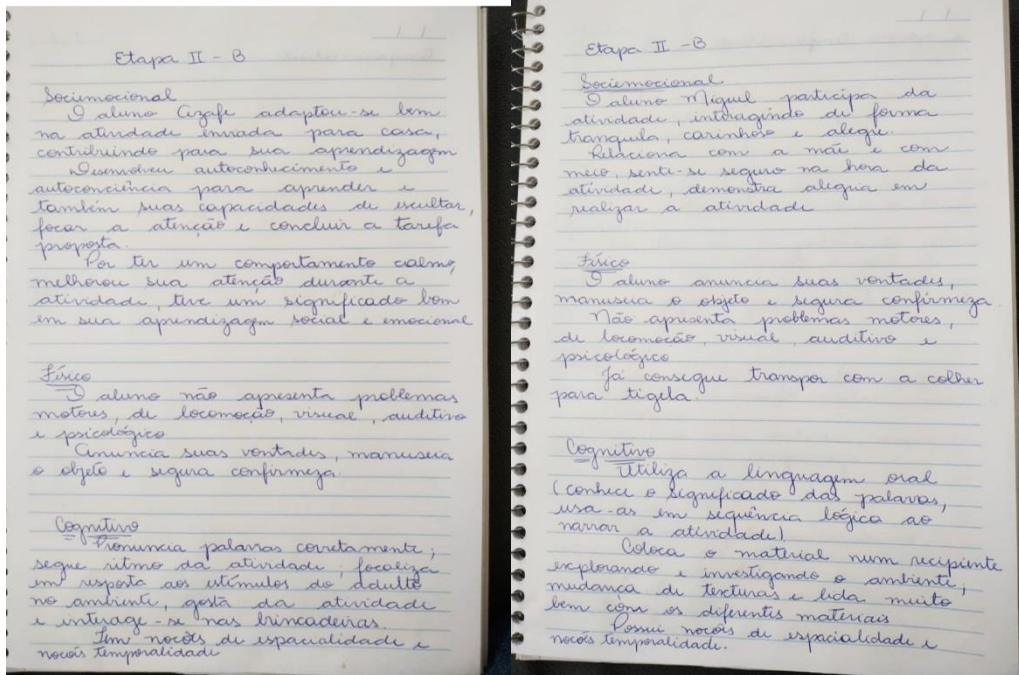 Etapa II - B
Sociemocional
O aluno Azafe adaptou-se bem
na atividade enviada para casa,
contribuindo para sua aprendizagem
Desenvolveu autoconhecimento e
autoconciência para aprender e
também suas capacidades de escultar,
focar a atenção e concluir a tarefa
proposta.
Por ter um comportamento calmo,
melhorou sua atenção durante a
atividade, teve um significado bom
em sua aprendizagem social e emocional
Físico
O aluno não apresenta problemas
motores, de locomoção, visual, auditivo
e psicológico
Anuncia suas vontades, manuseia
o objeto e segura confirmeza.
Cognitivo
Pronuncia palavras corretamente;
segue ritmo da atividade; focaliza
em resposta aos utímulos do adulto
no ambiente, gosta da atividade
e interage-se nas brincadeiras.
Tem nocões de espacialidade e
nocões temporalidade
Etapa II - B
Sociemocional
O aluno Miguel participa da
atividade, interagindo de forma
tranquila, carinhoso e alegre.
Relaciona com a mãe e com
meio, senti-se seguro na hora da
atividade, demonstra alegria em
realizar a atividade
Físico
O aluno anuncia suas vontades,
manuseia o objeto e segura confirmeza.
Não apresenta problemas motores,
de locomoção, visual, auditivo e
psicológico
Já consegue transpor com a colher
para tigela.
Cognitivo
Utiliza a linguagem oral
(conhece o significado das palavas,
usa-as em sequência lógica ao
narrar a atividade)
Coloca o material num recipiente
explorando e investigando o ambiente,
mudança de texturas e lida muito
bem com os diferentes materiais
Possui nocões de espacialidade e
nocões temporalidade.